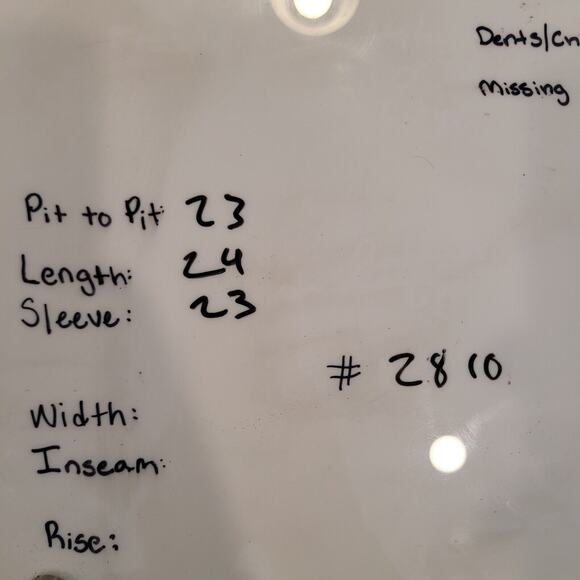 Dents/Cn
Missing
Pit to Pit: 23
Length: 24
Sleeve: 23
# 2810
Width:
Inseam:
Rise: